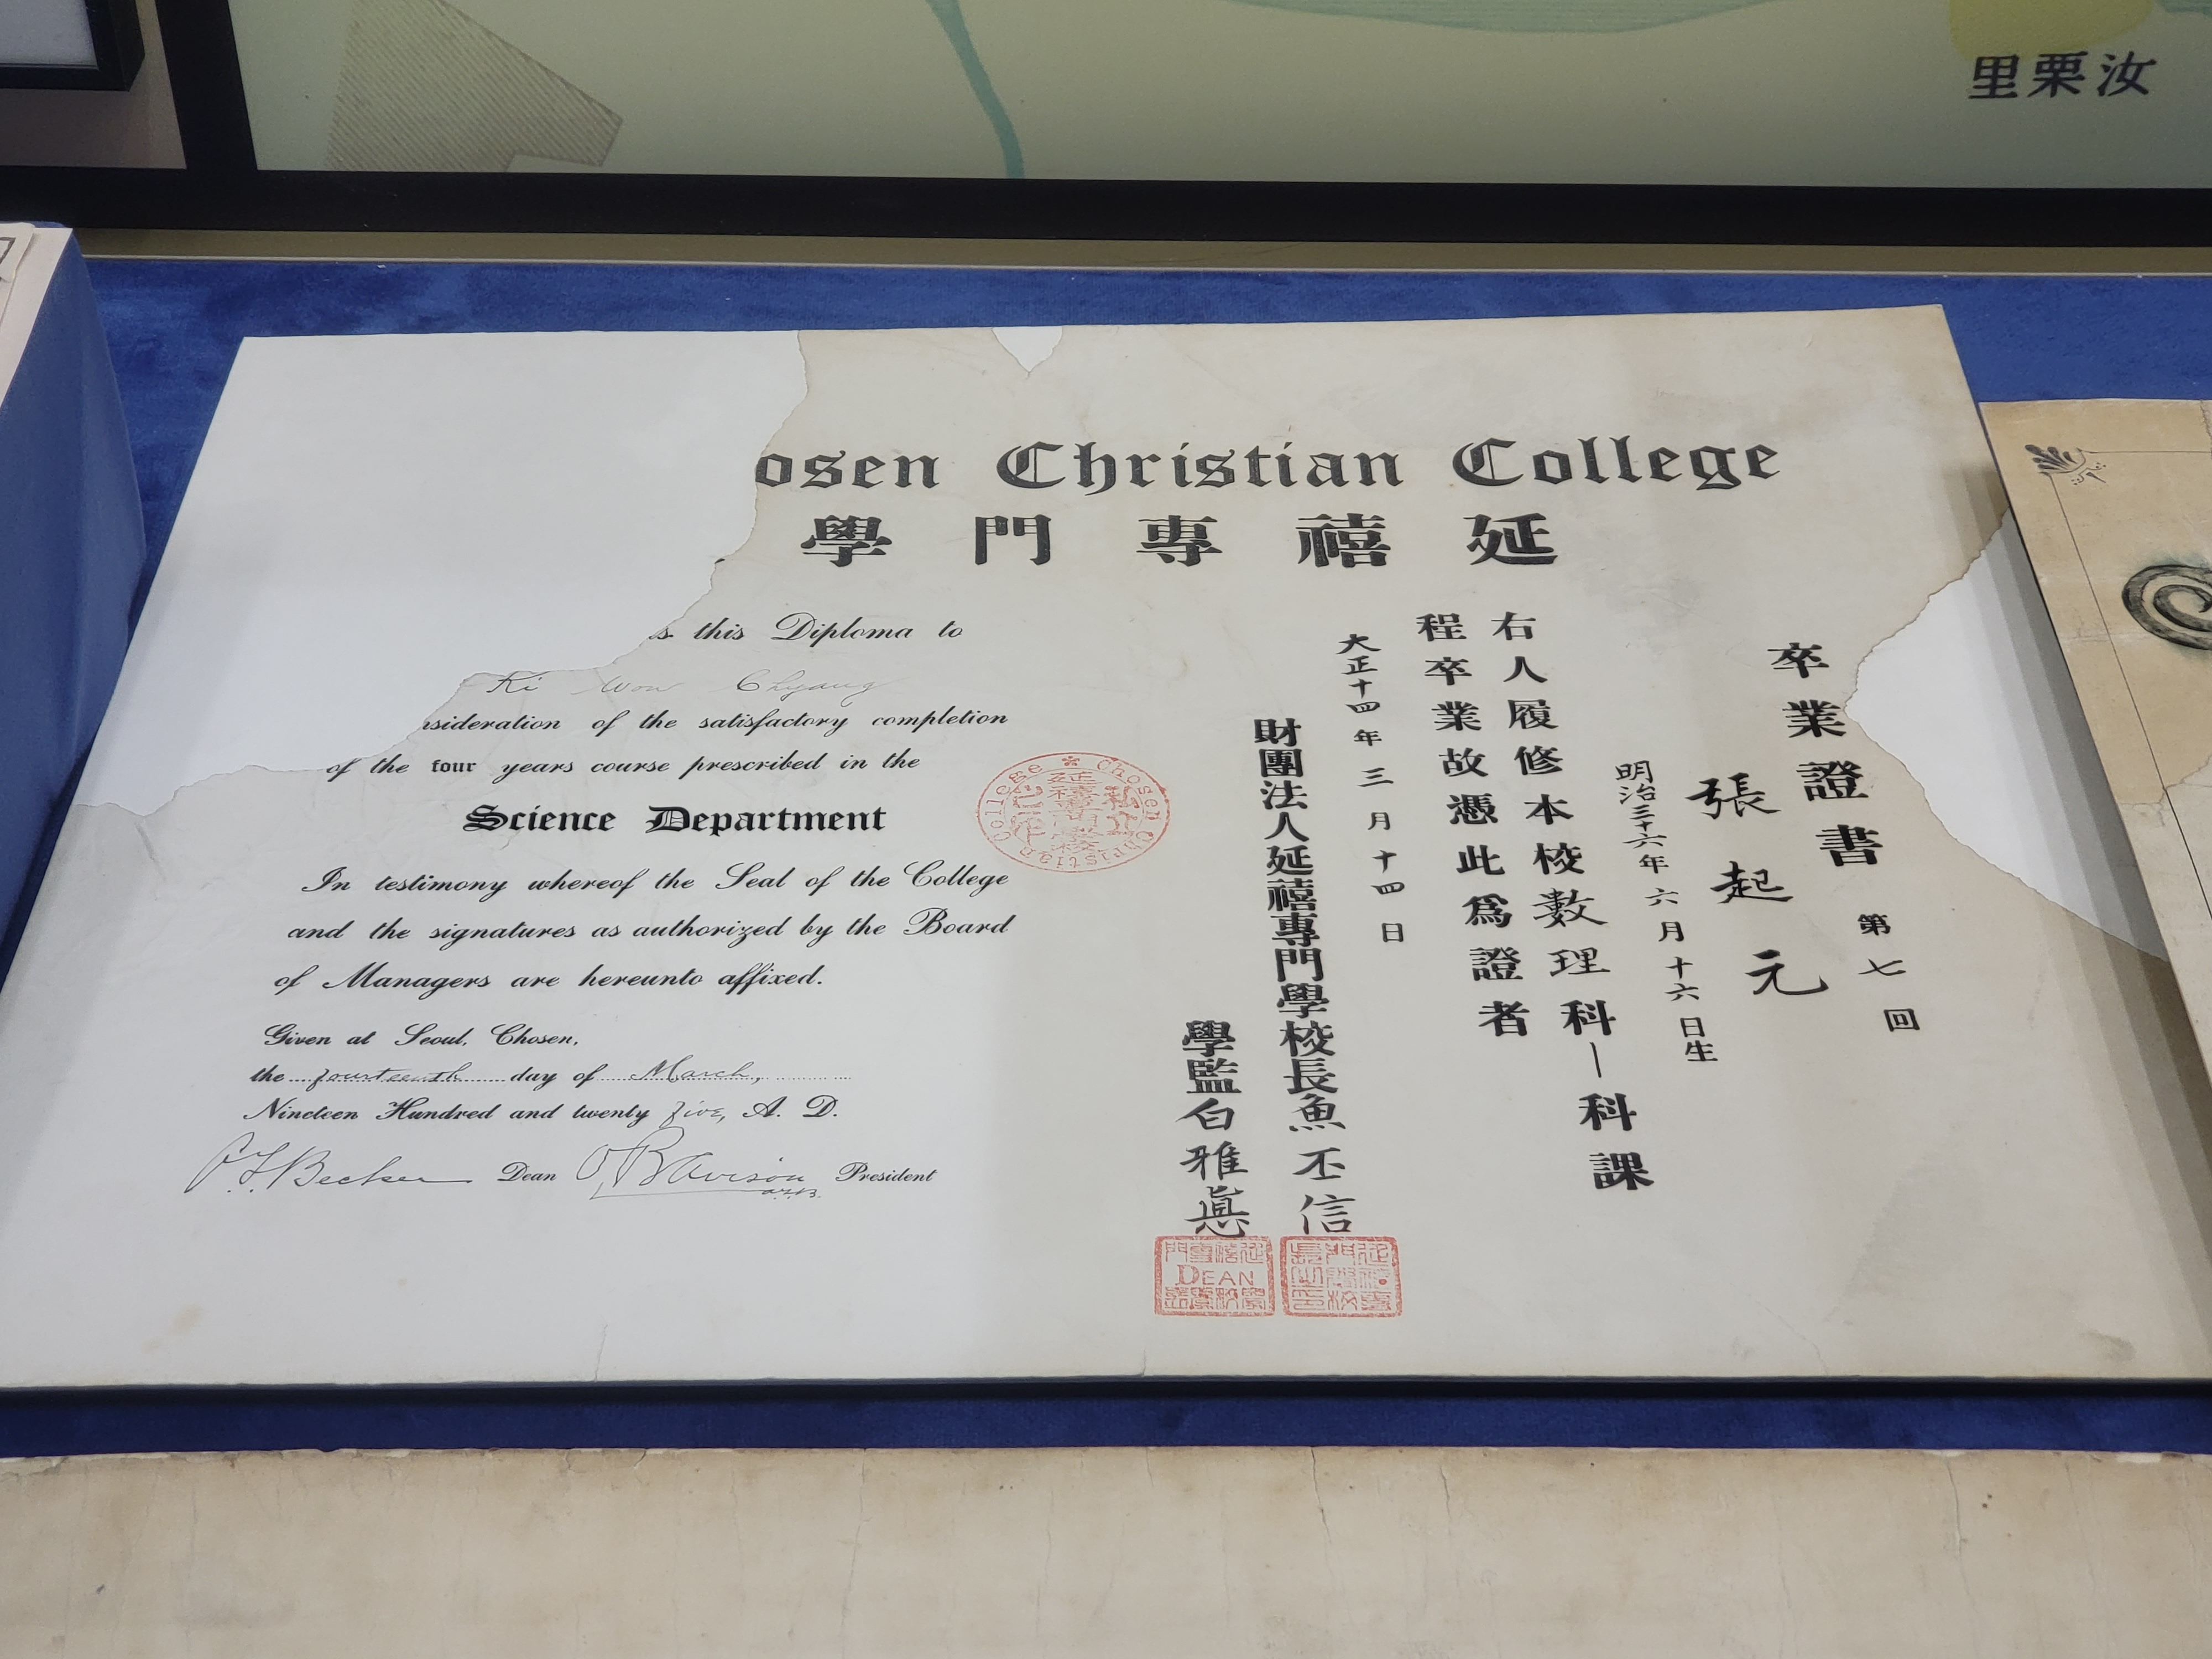 里栗汝
osen Christian College
學門專禧延
s this Diploma to
Ki Won Chyang
nsideration of the satisfactory completion
of the four years course prescribed in the
Science Department
In testimony whereof the Seal of the College
and the signatures as authorized by the Board
of Managers are hereunto affixed.
Given at Seoul, Chosen,
the fourteenth day of March,
Nineteen Hundred and twenty five, A. D.
Becker Dean O. R. Avison President
Chosen Christian College
卒業證書
第七回
張起元
明治三十六年六月十六日生
右人履修本校數理科一科課
程卒業故憑此爲證者
大正十四年三月十四日
財團法人延禧專門學校長魚丕信
學監白雅悳
DEAN